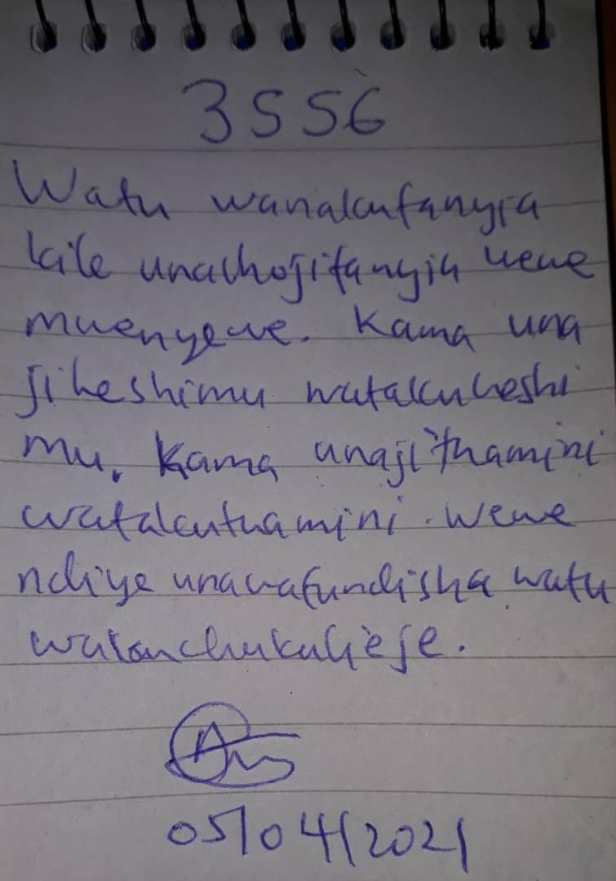 3556
Watu wanakufanyia
kile unachojifanyia wewe
mwenyewe. Kama una
jiheshimu watakuheshi
mu. Kama unajithamini
watakuthamini. Wewe
ndiye unawafundisha watu
05/04/2021